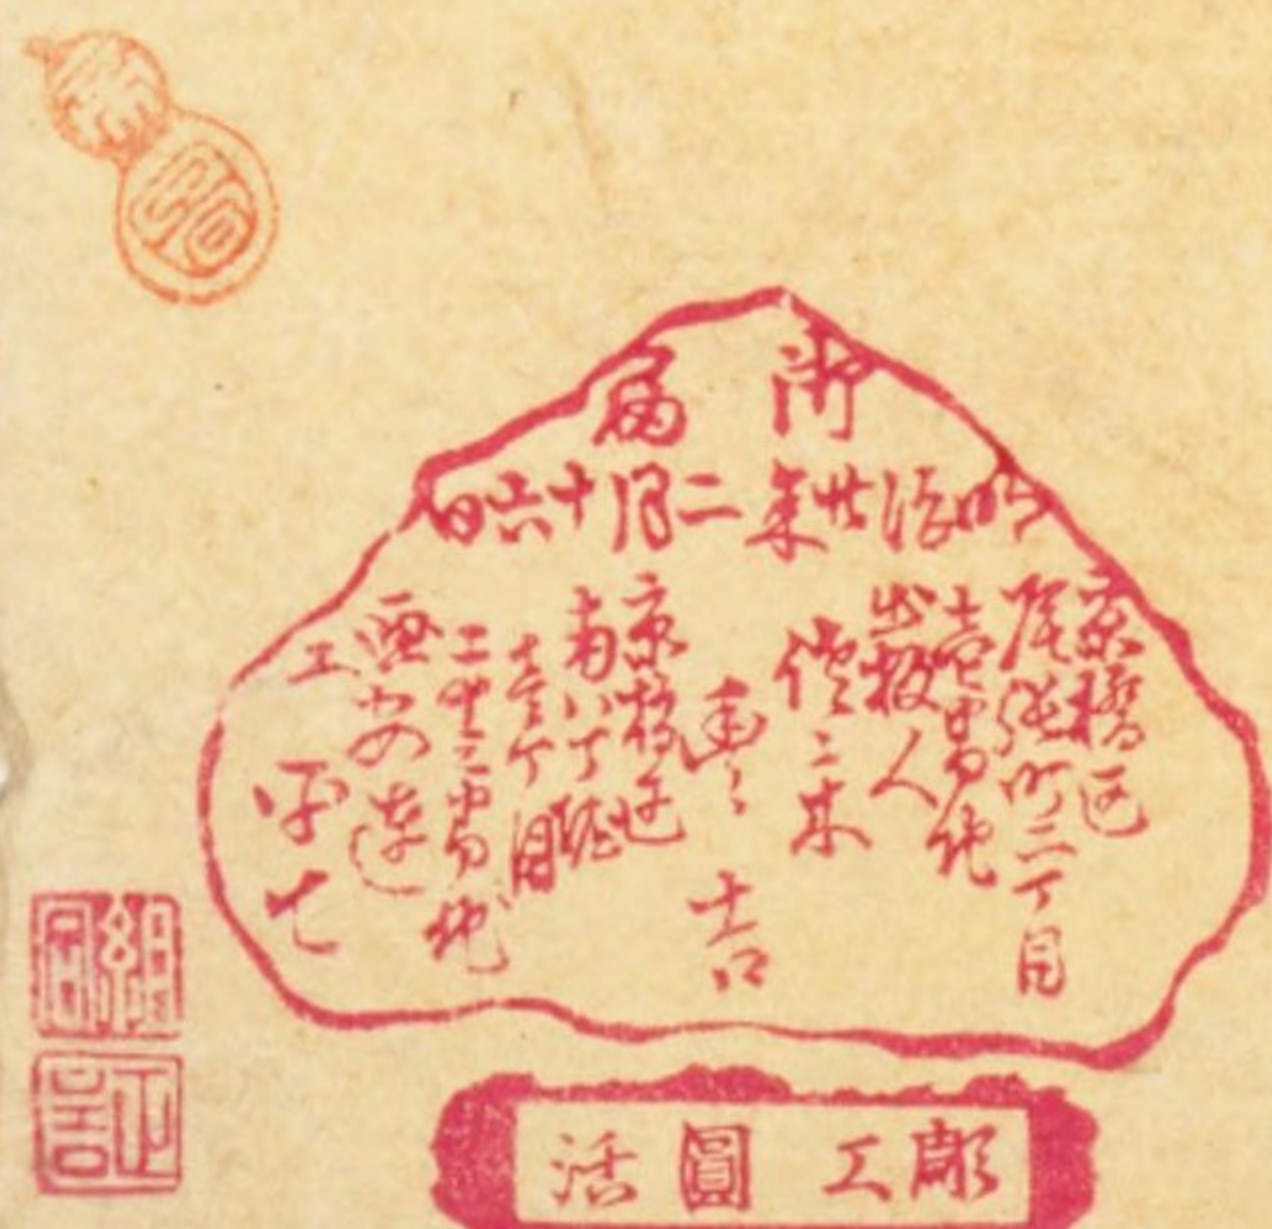 御届
明治廿年二月十六日
京橋区
尾張町二丁目
十壱番地
出板人
佐々木
豊吉
京橋区
南八丁堀
壱丁目
二十三番地
画安達
工平七
彫工圓活